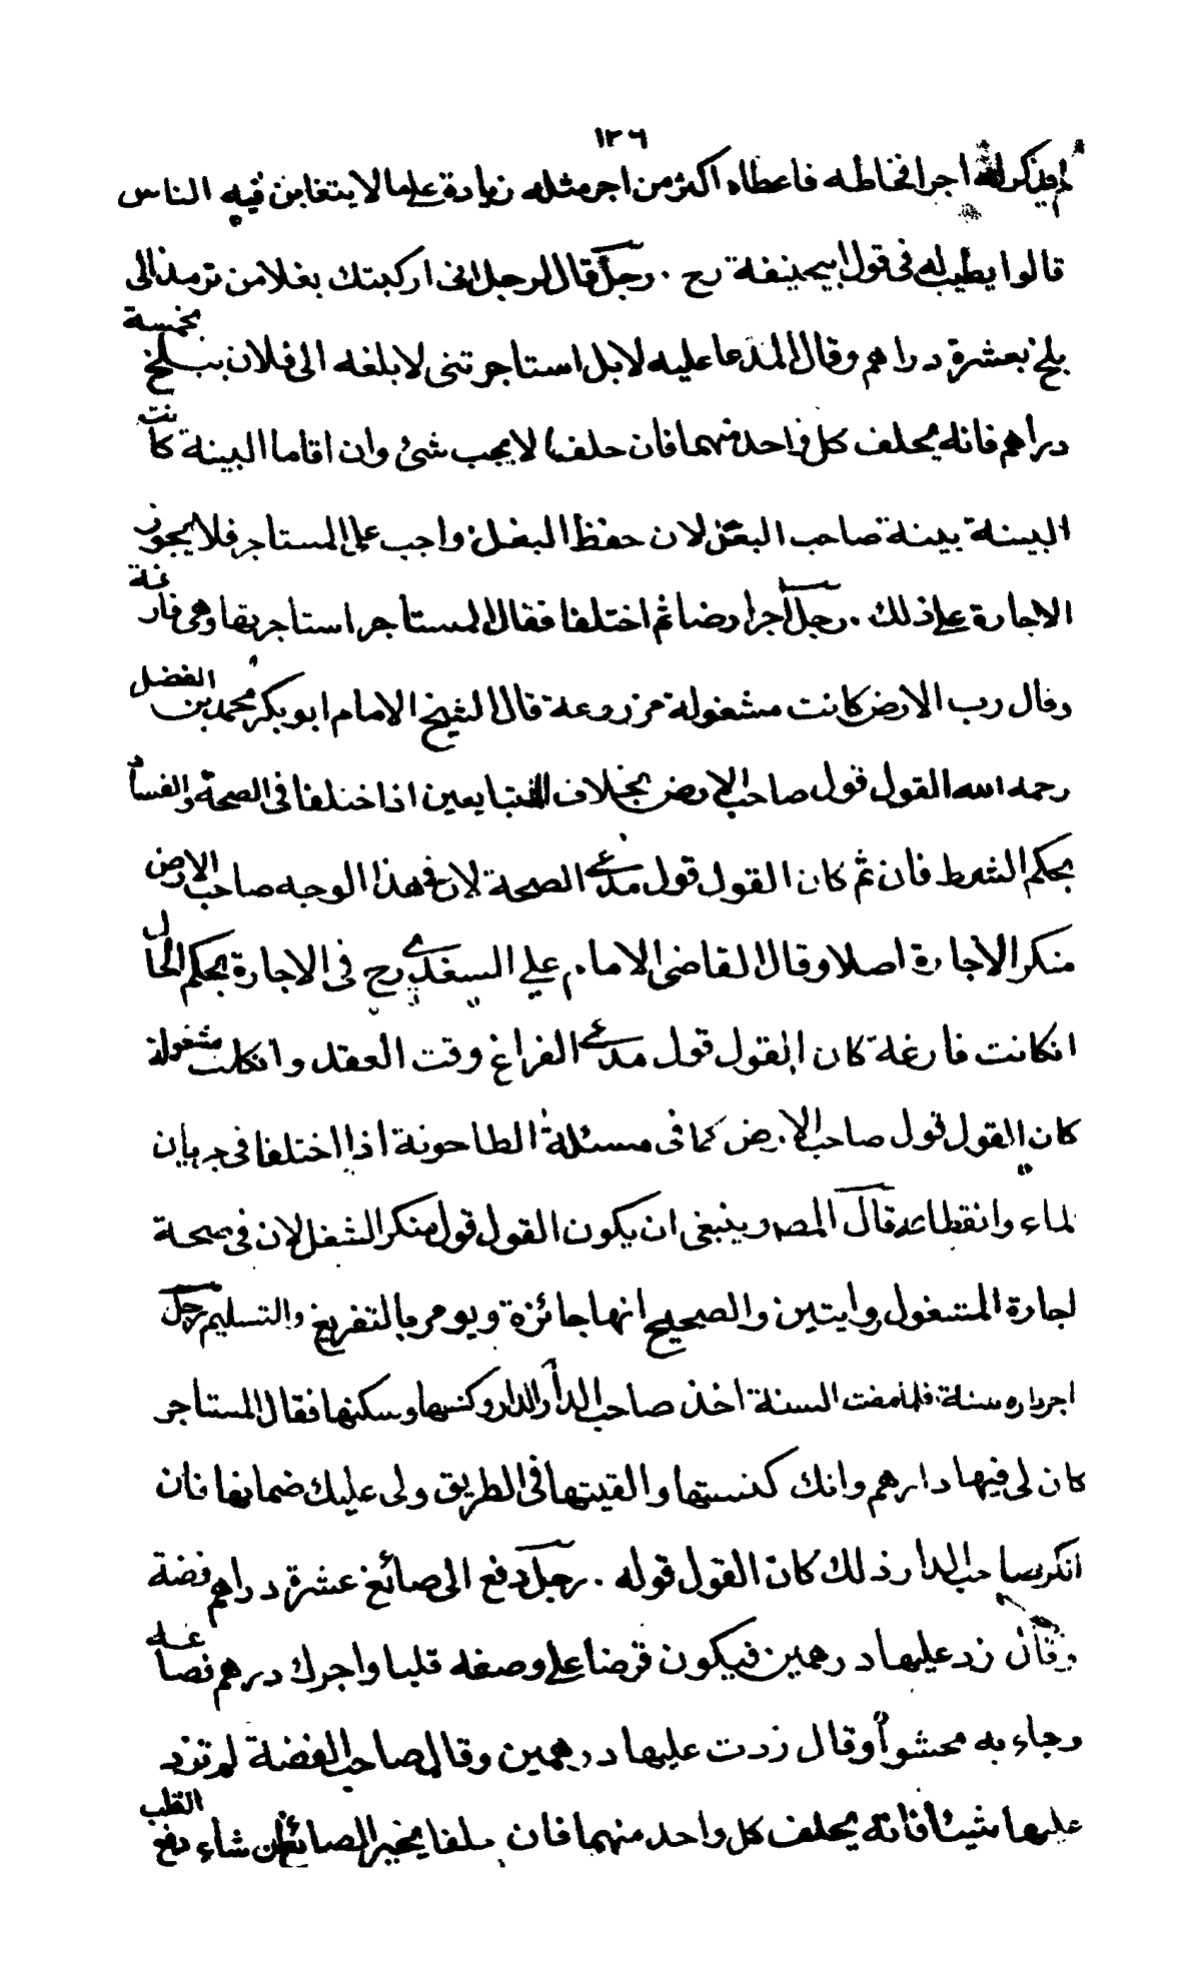 ١٢٦
لم يذكر له اجرا فخاطه فاعطاه اكثر من اجر مثله زيادة على ما لا يتغابن فيه الناس
قالوا يطيب له فى قول ابيحنيفة رح . رجل قال لرجل انى اركبتك بغلا من ترمذ الى
بلخ بعشرة دراهم وقال المدعا عليه لا بل استاجرتنى لابلغه الى فلان ببلخ بخمسة
دراهم فانه يحلف كل واحد منهما فان حلفا لا يجب شئ وان اقاما البينة كانت
البينة بينة صاحب البغل لان حفظ البغل واجب على المستاجر فلا يجوز
الاجارة على ذلك . رجل آجر ارضا ثم اختلفا فقال المستاجر استاجرتها وهى فارغة
وقال رب الارض كانت مشغولة مزروعة قال الشيخ الامام ابو بكر محمد بن الفضل
رحمه الله القول قول صاحب الارض بخلاف المتبايعين اذا اختلفا فى الصحة والفساد
بحكم الشرط فان ثم كان القول قول مدعى الصحة لان فى هذا الوجه صاحب الارض
منكر الاجارة اصلا وقال القاضى الامام على السغدى رح فى الاجارة بحكم الحال
انكانت فارغة كان القول قول مدعى الفراغ وقت العقد وانكانت مشغولة
كان القول قول صاحب الارض كما فى مسئلة الطاحونة اذا اختلفا فى جريان
لماء وانقطاعه قال المصـ وينبغى ان يكون القول قول منكر الشغل لان فى صحة
اجارة المشغول روايتين والصحيح انها جائزة ويومر بالتفريغ والتسليم رجل
اجر داره سنة فلما مضت السنة اخذ صاحب الدار الدار وكنسها وسكنها فقال المستاجر
كان لى فيها دارهم وانك كنستها والقيتها فى الطريق ولى عليك ضمانها فان
انكر صاحب الدار ذلك كان القول قوله . رجل دفع الى صائغ عشرة دراهم فضة
وقال زد عليها درهمين فيكون قرضا على وصغه قلبا واجرك درهم فصاغه
وجاء به محشوا وقال زدت عليها درهمين وقال صاحب الفضة لم تزد
عليها شيئا فانه يحلف كل واحد منهما فان حلفا يخير الصائغ ان شاء دفع القلب